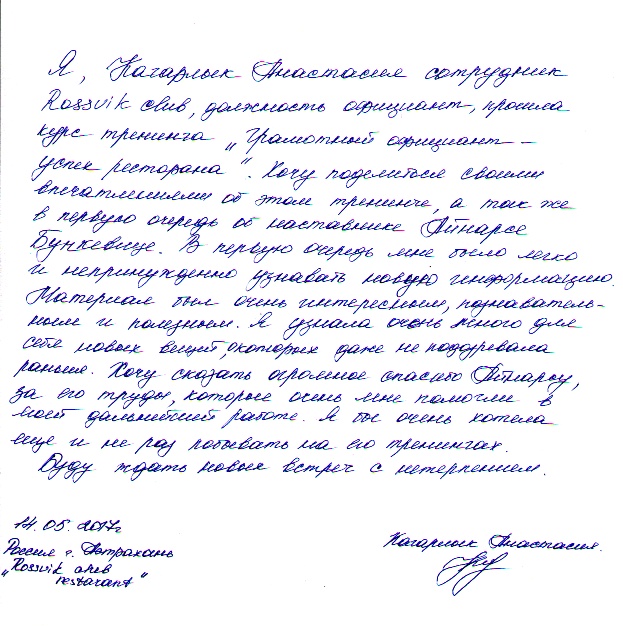 Я, Кагарлык Анастасия сотрудник
Rossvik club, должность официант, прошла
курс тренинга „Грамотный официант –
успех ресторана“. Хочу поделиться своими
впечатлениями об этом тренинге, а так же
в первую очередь об наставнике Айнарсе
Бункевице. В первую очередь мне было легко
и непринужденно узнавать новую информацию.
Материал был очень интересным, познаватель-
ным и полезным. Я узнала очень много для
себя новых вещей, о которых даже не подозревала
раньше. Хочу сказать огромное спасибо Айнарсу,
за его труды, которые очень мне помогли в
моей дальнейшей работе. Я бы очень хотела
еще и не раз побывать на его тренингах.
Буду ждать новых встреч с нетерпением.
14.05.2017г
Россия г. Астрахань
„Rossvik
restarant“
Кагарлык Анастасия.